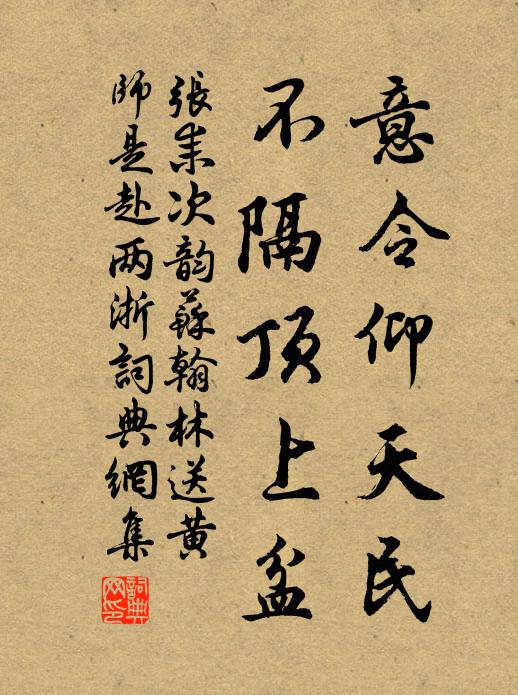 意令仰天民
不隔頂上盆
張耒次韵蘇翰林送黄
師是赴两浙詞典網集
詞典网印